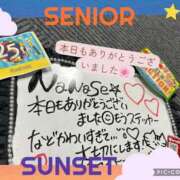 SENIOR
本日もありがとうござ
いました
25
NaNaSe☆
本日もありがとうござい
ました☺もうステッカー
などかわいすぎて♡
大切にします
SUNSET
PIC-COLLAGE